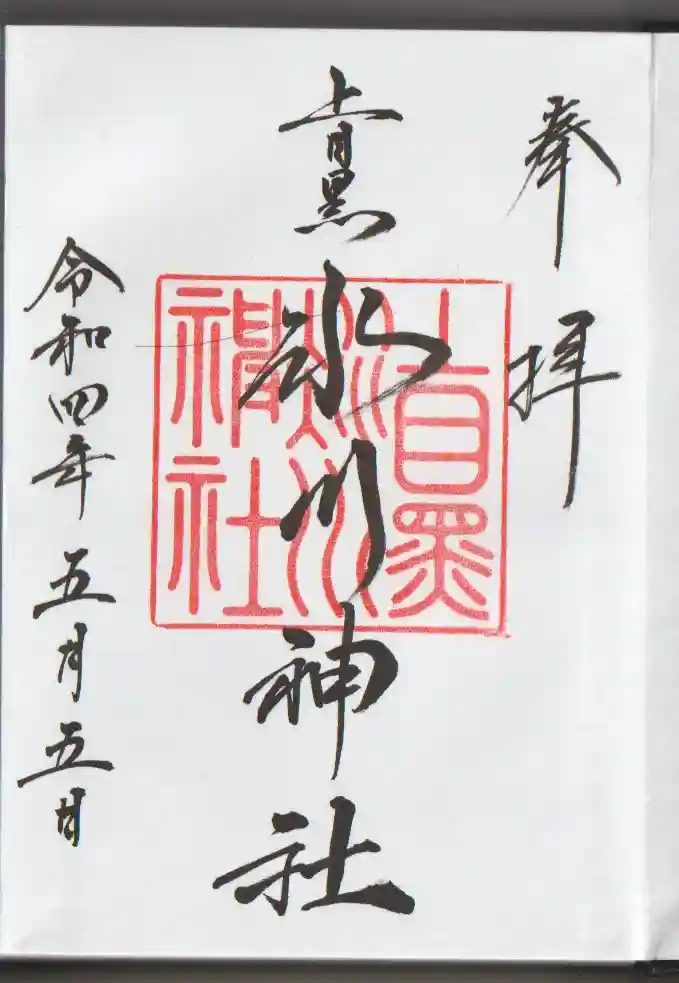 奉拝
上目黒氷川神社
上目黒
氷川
神社
令和四年五月五日